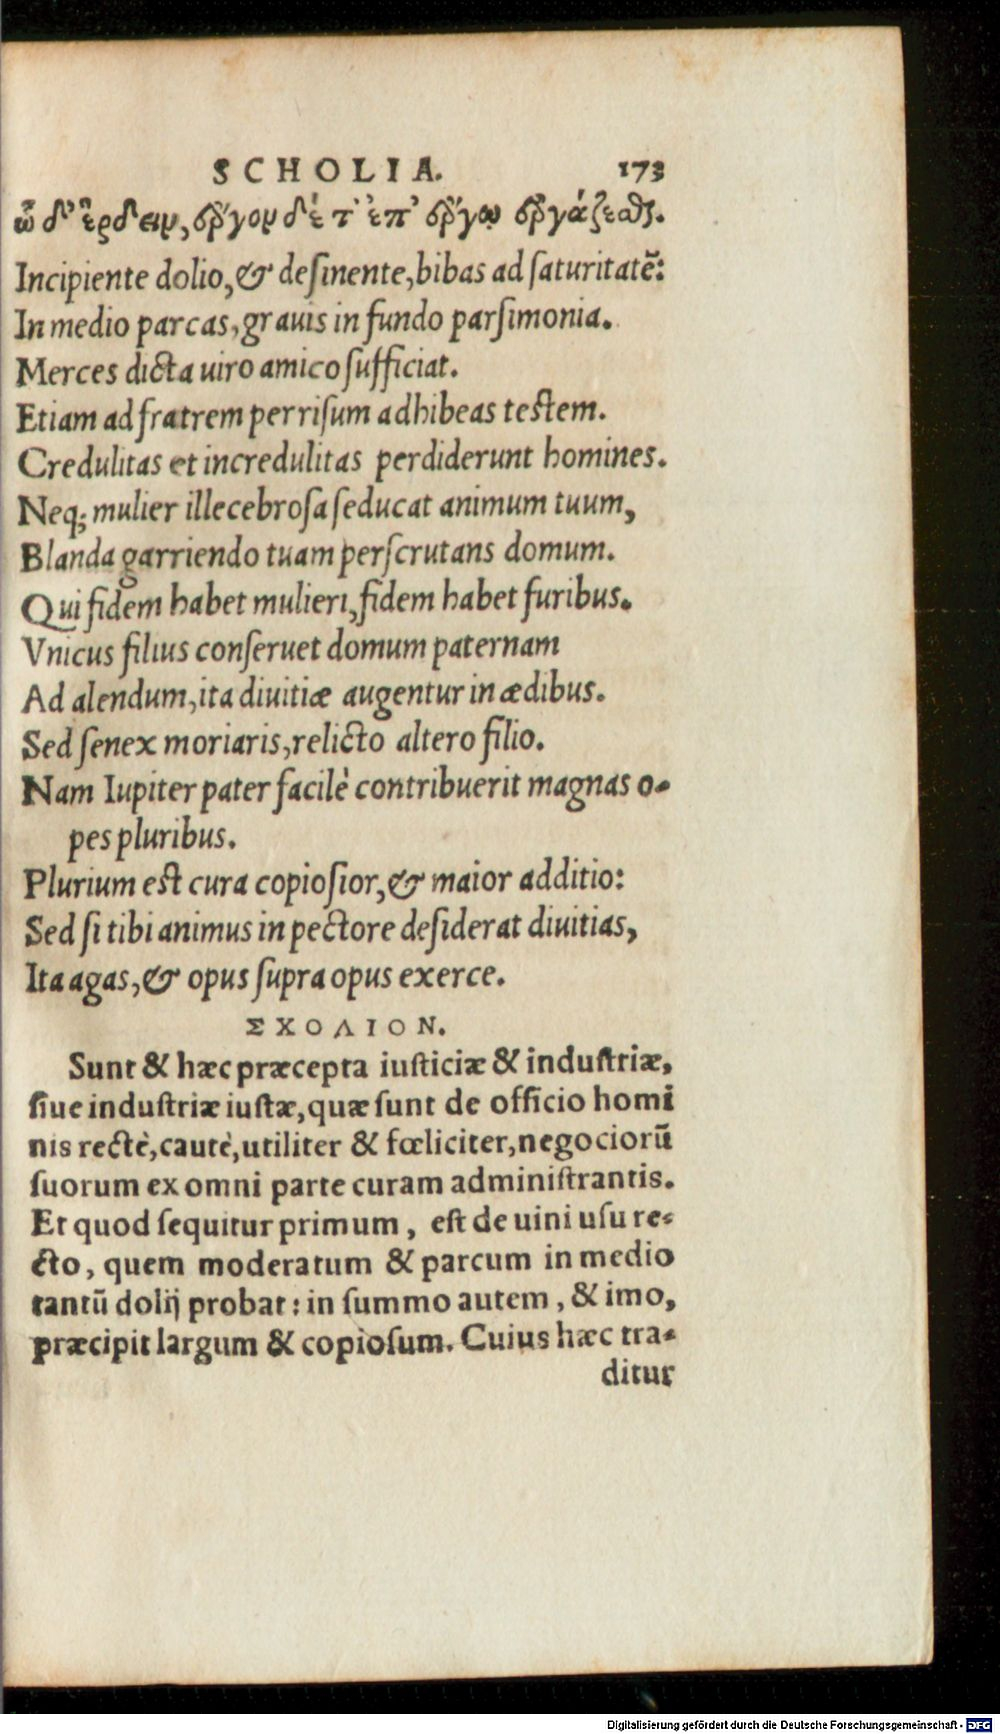 SCHOLIA. 173
ὧδ' ἔρδειν, ἔργον δέ τ' ἐπ' ἔργῳ ἐργάζεσθαι.
Incipiente dolio,& desinente,bibas ad saturitatē:
In medio parcas,grauis in fundo parsimonia.
Merces dicta uiro amico sufficiat.
Etiam ad fratrem per risum adhibeas testem.
Credulitas et incredulitas perdiderunt homines.
Neq; mulier illecebrosa seducat animum tuum,
Blanda garriendo tuam perscrutans domum.
Qui fidem habet mulieri,fidem habet furibus.
Vnicus filius conseruet domum paternam
Ad alendum,ita diuitiæ augentur in ædibus.
Sed senex moriaris,relicto altero filio.
Nam Iupiter pater facilè contribuerit magnas o-
pes pluribus.
Plurium est cura copiosior,& maior additio:
Sed si tibi animus in pectore desiderat diuitias,
Ita agas,& opus supra opus exerce.
ΣΧΟΛΙΟΝ.
Sunt & hæc præcepta iusticiæ & industriæ,
siue industriæ iustæ,quæ sunt de officio homi
nis rectè,cautè,utiliter & fœliciter,negociorū
suorum ex omni parte curam administrantis.
Et quod sequitur primum, est de uini usu re-
cto, quem moderatum & parcum in medio
tantū dolij probat: in summo autem, & imo,
præcipit largum & copiosum. Cuius hæc tra-
ditur
Digitalisierung gefördert durch die Deutsche Forschungsgemeinschaft - DFG